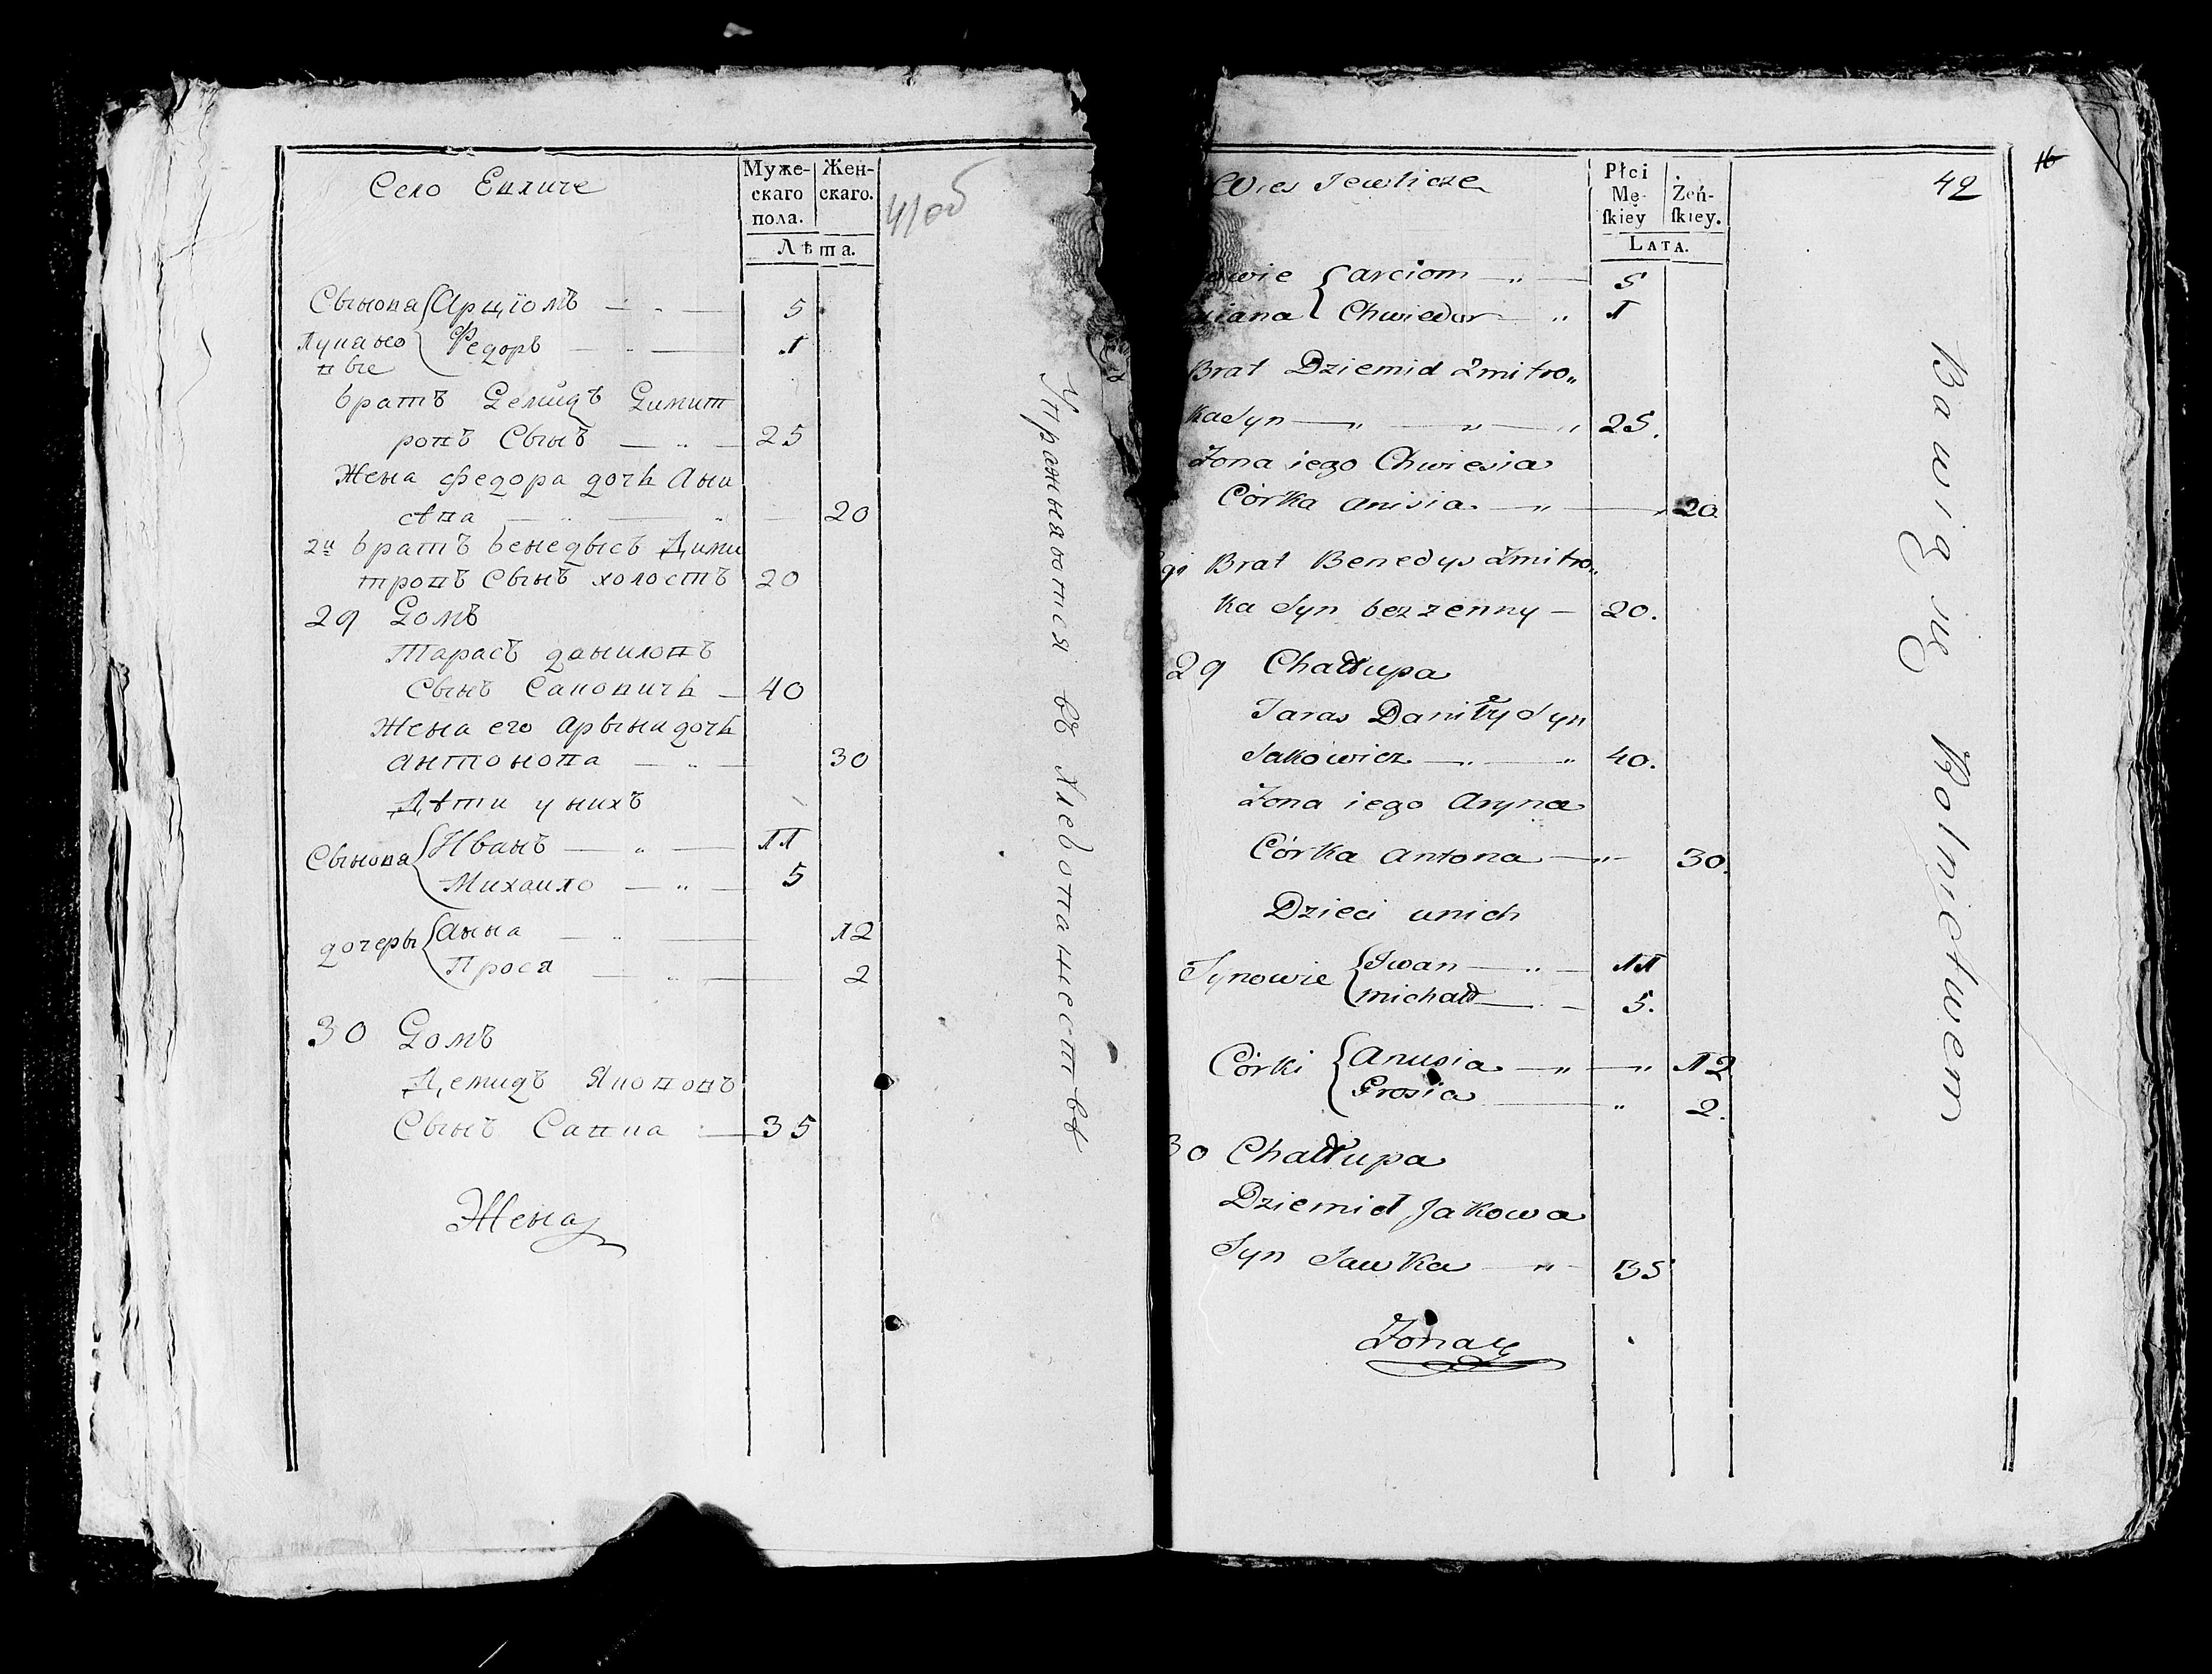 Село Евличе
Муже-
скаго
пола.
Жен-
скаго.
Лѣта.
41об
Сынова { Арціомъ — „ — 5
Лукано
вые { Федоръ — „ — 1
братъ Демидъ Димит
ровъ Сынъ — „ — 25
Жена Федора дочь Ани
сѣва — „ — „ — 20
2й братъ бенедысъ Дими
тровъ Сынъ холостъ 20
29 Домъ
Тарасъ даниловъ
Сынъ Саковичъ — 40
Жена его Арына дочь
антонова — „ — 30
Дѣти у нихъ
Сынова { Иванъ — „ — 11
Михаило — „ — 5
дочеры { Анна — „ — 12
Прося — „ — 2
30 Домъ
Демидъ Якововъ
Сынъ Савка — 35
Жена
Упражняются въ Хлебопашествѣ
Wies Jewlicze
Płci
Mę-
ſkiey
Żeń-
ſkiey.
LATA.
42
16
owie { arciom — „ — 5
kiana { Chwiedor — „ 1
Brat Dziemid Zmitro„
ka Syn — „ — „ — „ 25.
Zona iego Chwiesia
Córka anisia — „ — 20
gi Brat Benedys Zmitro„
ka Syn bezzenny — 20.
29 Chałłupa
Taras Daniły Syn
Sakowicz — „ — „ 40.
Zona iego Aryna
Córka antona — „ — 30.
Dzieci unich
Synowie { Iwan — „ — 11
michałł — „ — 5.
Córki { Anusia — „ — „ 12
Prosia — „ 2.
30 Chałłupa
Dziemid Jakowa
Syn Sawka — „ — 35
Zona
Bawią się Rolnictwem